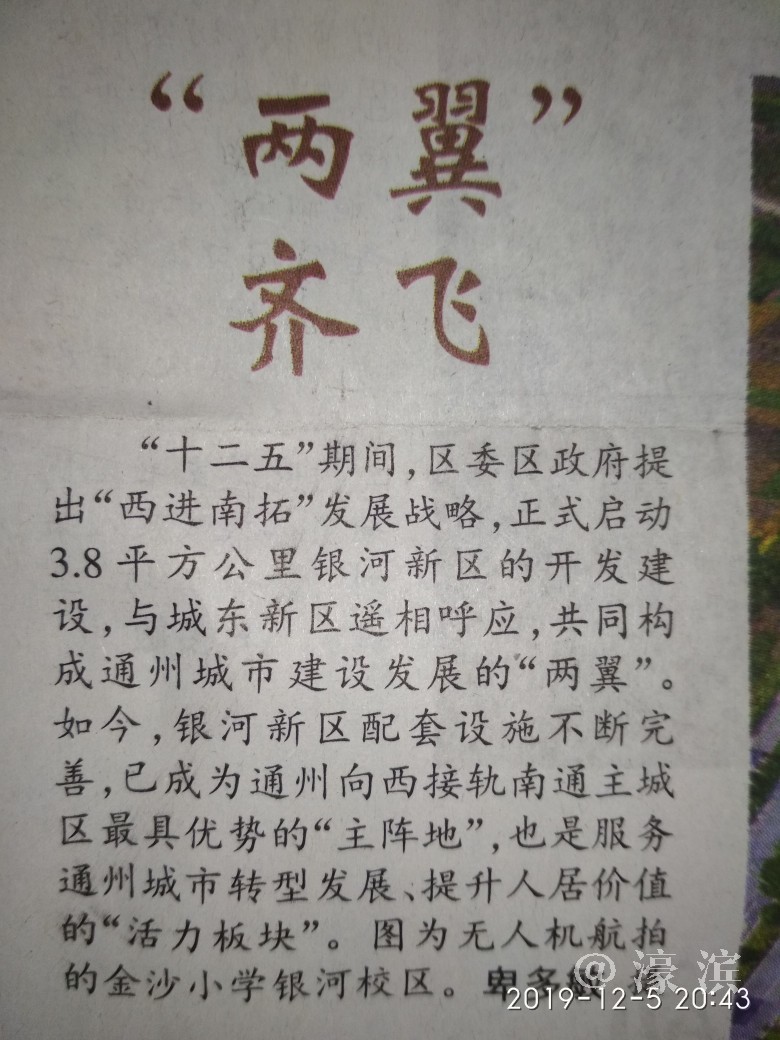 “两翼”
齐飞
“十二五”期间,区委区政府提
出“西进南拓”发展战略,正式启动
3.8平方公里银河新区的开发建
设,与城东新区遥相呼应,共同构
成通州城市建设发展的“两翼”。
如今,银河新区配套设施不断完
善,已成为通州向西接轨南通主城
区最具优势的“主阵地”,也是服务
通州城市转型发展、提升人居价值
的“活力板块”。图为无人机航拍
的金沙小学银河校区。卑多
@濠滨
2019-12-5 20:43